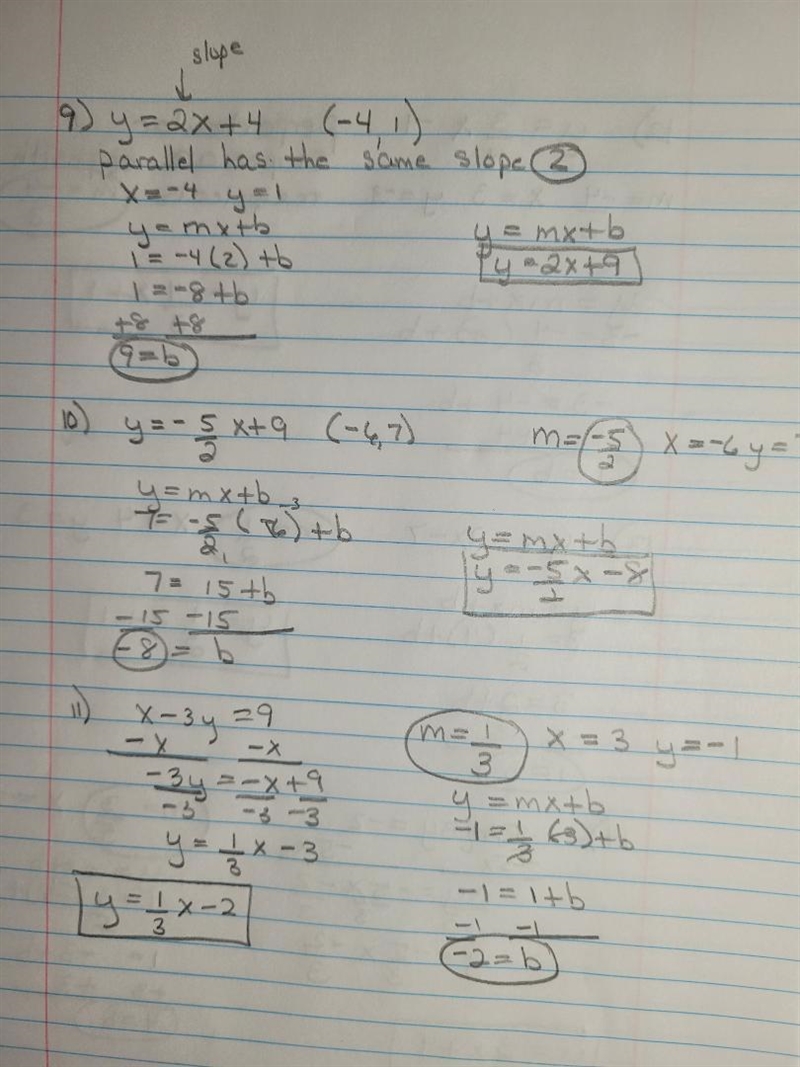 slope
9) y = 2x + 4 (-4, 1)
parallel has the same slope 2
x = -4 y = 1
y = mx + b
1 = -4(2) + b
1 = -8 + b
+8 +8
9 = b
y = mx + b
y = 2x + 9
10) y = -5/2 x + 9 (-6, 7)
m = -5/2 x = -6 y =
y = mx + b
7 = -5/2 (-6) + b
-3
1
7 = 15 + b
-15 -15
-8 = b
y = mx + b
y = -5/2 x - 8
11) x - 3y = 9
-x -x
-3y = -x + 9
-3 -3 -3
y = 1/3 x - 3
y = 1/3 x - 2
m = 1/3 x = 3 y = -1
y = mx + b
-1 = 1/3 (3) + b
-1 = 1 + b
-1 -1
-2 = b